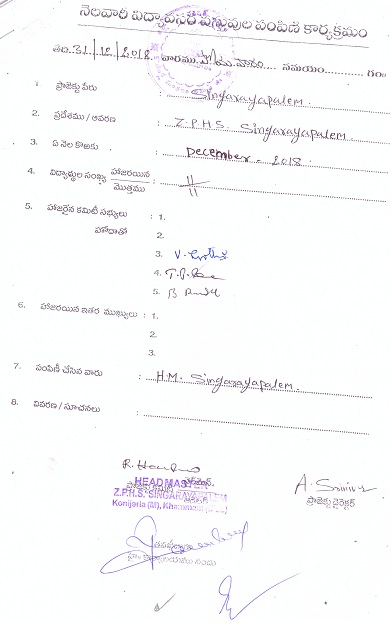 నెలవారీ విద్యావసర వస్తువుల పంపిణీ కార్యక్రమం
తేది: 31/12/2018 వారము సోమవారం సమయం............ గం॥
1. ప్రాజెక్టు పేరు : Singarayapalem.
2. ప్రదేశము / ఆవరణ : Z.P.H.S. Singarayapalem.
3. ఏ నెల కొఱకు : December - 2018
4. విద్యార్థుల సంఖ్య హాజరయిన / మొత్తము :
5. హాజరైన కమిటీ సభ్యులు : 1.
హోదాతో 2.
3.
4.
5.
6. హాజరయిన ఇతర ముఖ్యులు : 1.
2.
3.
7. పంపిణీ చేసిన వారు : H.M. Singarayapalem.
8. వివరణ / సూచనలు :
HEADMASTER
Z.P.H.S. SINGARAYAPALEM
Konijerla (M), Khammam
ప్రాజెక్టు డైరెక్టర్